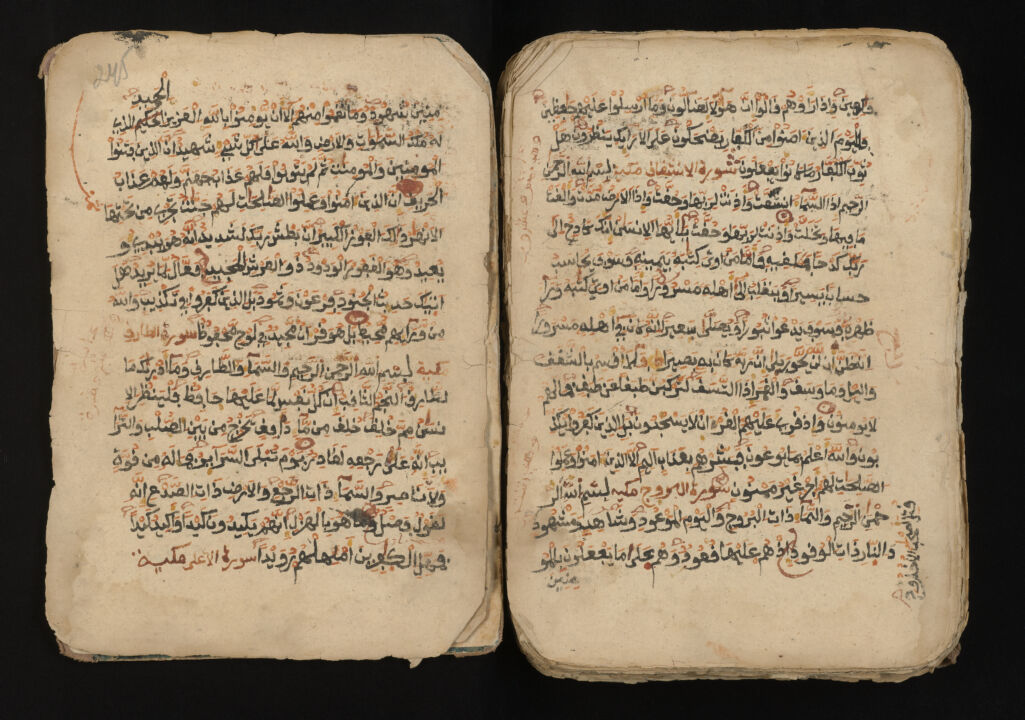 فكهين واذا راوهم قالوا ان هولا لضالون وما ارسلوا عليهم حفظين
فاليوم الذين امنوا من الكفار يضحكون على الارايك ينظرون هل
ثوب الكفار ما كانوا يفعلون سورة الانشقاق مكية بسم الله الرحمن
الرحيم اذا السماء انشقت واذنت لربها وحقت واذا الارض مدت والقت
ما فيها وتخلت واذنت لربها وحقت يايها الانسن انك كادح الى
ربك كدحا فملقيه فاما من اوتي كتبه بيمينه فسوف يحاسب
حسابا يسيرا وينقلب الى اهله مسرورا واما من اوتي كتبه ورا
ظهره فسوف يدعوا ثبورا ويصلى سعيرا انه كان في اهله مسرورا
انه ظن ان لن يحور بلى ان ربه كان به بصيرا فلا اقسم بالشفق
واليل وما وسق والقمر اذا اتسق لتركبن طبقا عن طبق فما لهم
لا يومنون واذا قري عليهم القران لا يسجدون بل الذين كفروا يكذ
بون والله اعلم بما يوعون فبشرهم بعذاب اليم الا الذين امنوا وعملوا
الصلحت لهم اجر غير ممنون سورة البروج مكية بسم الله الر
حمن الرحيم والسماء ذات البروج واليوم الموعود وشاهد ومشهود
قتل اصحب الاخدود
والنار ذات الوقود اذ هم عليها قعود وهم على ما يفعلون بالمو
منين
245
الحميد
منين شهود وما نقموا منهم الا ان يومنوا بالله العزيز الحكيم الذي
له ملك السموت والارض والله على كل شيء شهيد ان الذين فتنوا
المومنين والمومنت ثم لم يتوبوا فلهم عذاب جهنم ولهم عذاب
الحريق ان الذين امنوا وعملوا الصلحت لهم جنت تجري من تحتها
الانهر ذلك الفوز الكبير ان بطش ربك لشديد انه هو يبدي و
يعيد وهو الغفور الودود ذو العرش المجيد فعال لما يريد هل
اتيك حديث الجنود فرعون وثمود بل الذين كفروا في تكذيب والله
من ورايهم محيط بل هو قران مجيد في لوح محفوظ سورة الطارق
مكية بسم الله الرحمن الرحيم والسماء والطارق وما ادريك ما
الطارق النجم الثاقب ان كل نفس لما عليها حافظ فلينظر الا
نسن مم خلق خلق من ماء دافق يخرج من بين الصلب والترا
يب انه على رجعه لقادر يوم تبلى السراير فما له من قوة
ولا ناصر والسماء ذات الرجع والارض ذات الصدع انه
لقول فصل وما هو بالهزل انهم يكيدون كيدا واكيد كيدا
فمهل الكفرين امهلهم رويدا سورة الاعلى مكية